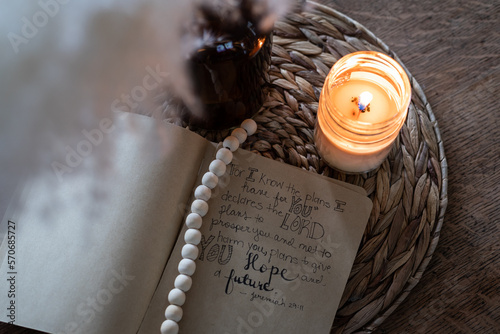 For I know the plans I
have for YOU"
declares the LORD,
plans to
prosper you and not to
harm you, plans to give
YOU Hope and
a future.
- jeremiah 29:11
Adobe Stock | #570685727